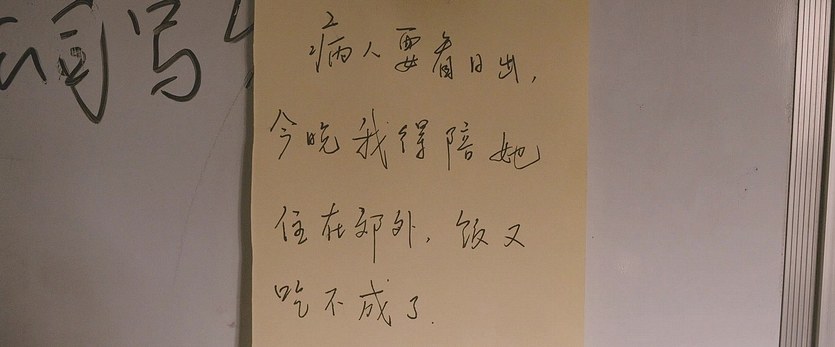 词写
病人要看日出，
今晚我得陪她
住在郊外，饭又
吃不成了.